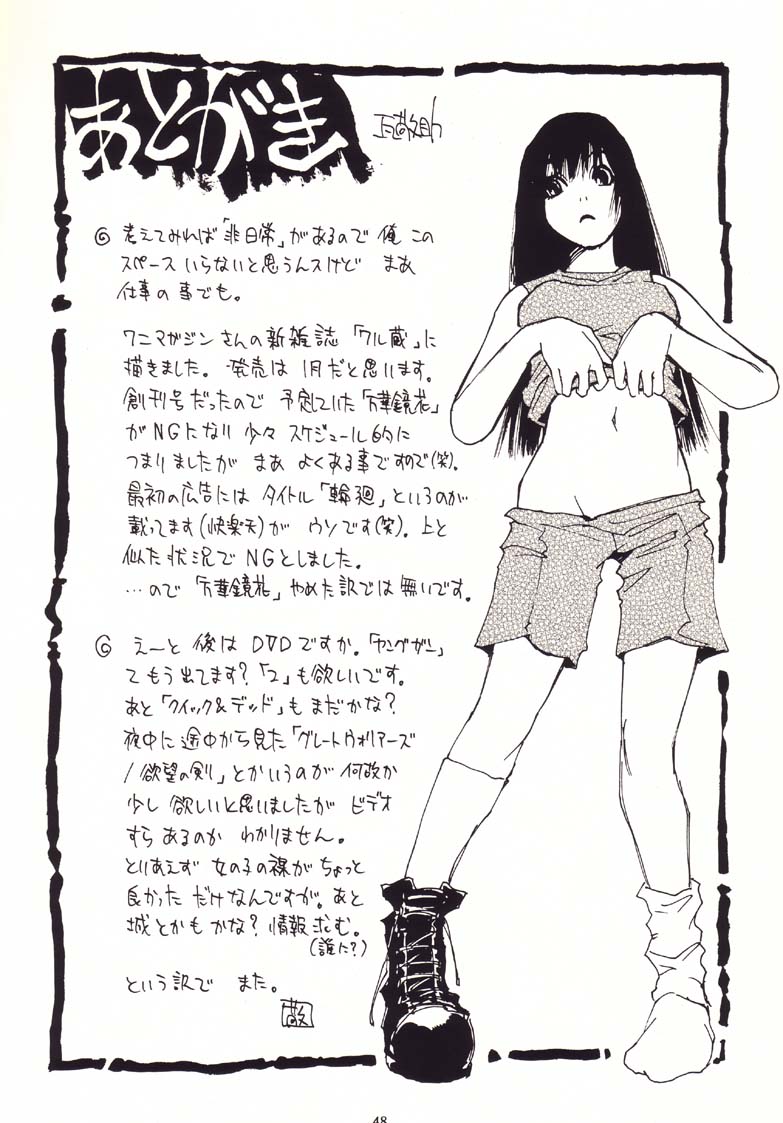 あとがき
考えてみれば「非日常」があるので 俺 この
スペース いらないと思うんスけど まあ
仕事の事でも。
ワニマガジンさんの新雑誌「ワル蔵」に
描きました。発売は 1月だと思います。
創刊号だったので 予定していた「万華鏡花」
が NGになり 少々 スケジュール的に
つまりましたが まあ よくある事ですので(笑)。
最初の広告には タイトル「輪廻」というのが
載ってます(快楽天)が ウソです(笑)。上と
似た状況で NGとしました。
…ので「万華鏡花」やめた訳では無いです。
えーと 後は DVDですか。「ヤングガン」
てもう出てます?「2」も欲しいです。
あと「クイック&デッド」も まだかな?
夜中に途中から見た「グレートウォリアーズ
/欲望の剣」とかいうのが 何故か
少し 欲しいと思いましたが ビデオ
すら あるのか わかりません。
とりあえず 女の子の裸が ちょっと
良かった だけなんですが。あと
城とかもかな? 情報求む。
(誰に?)
という訳で また。
48